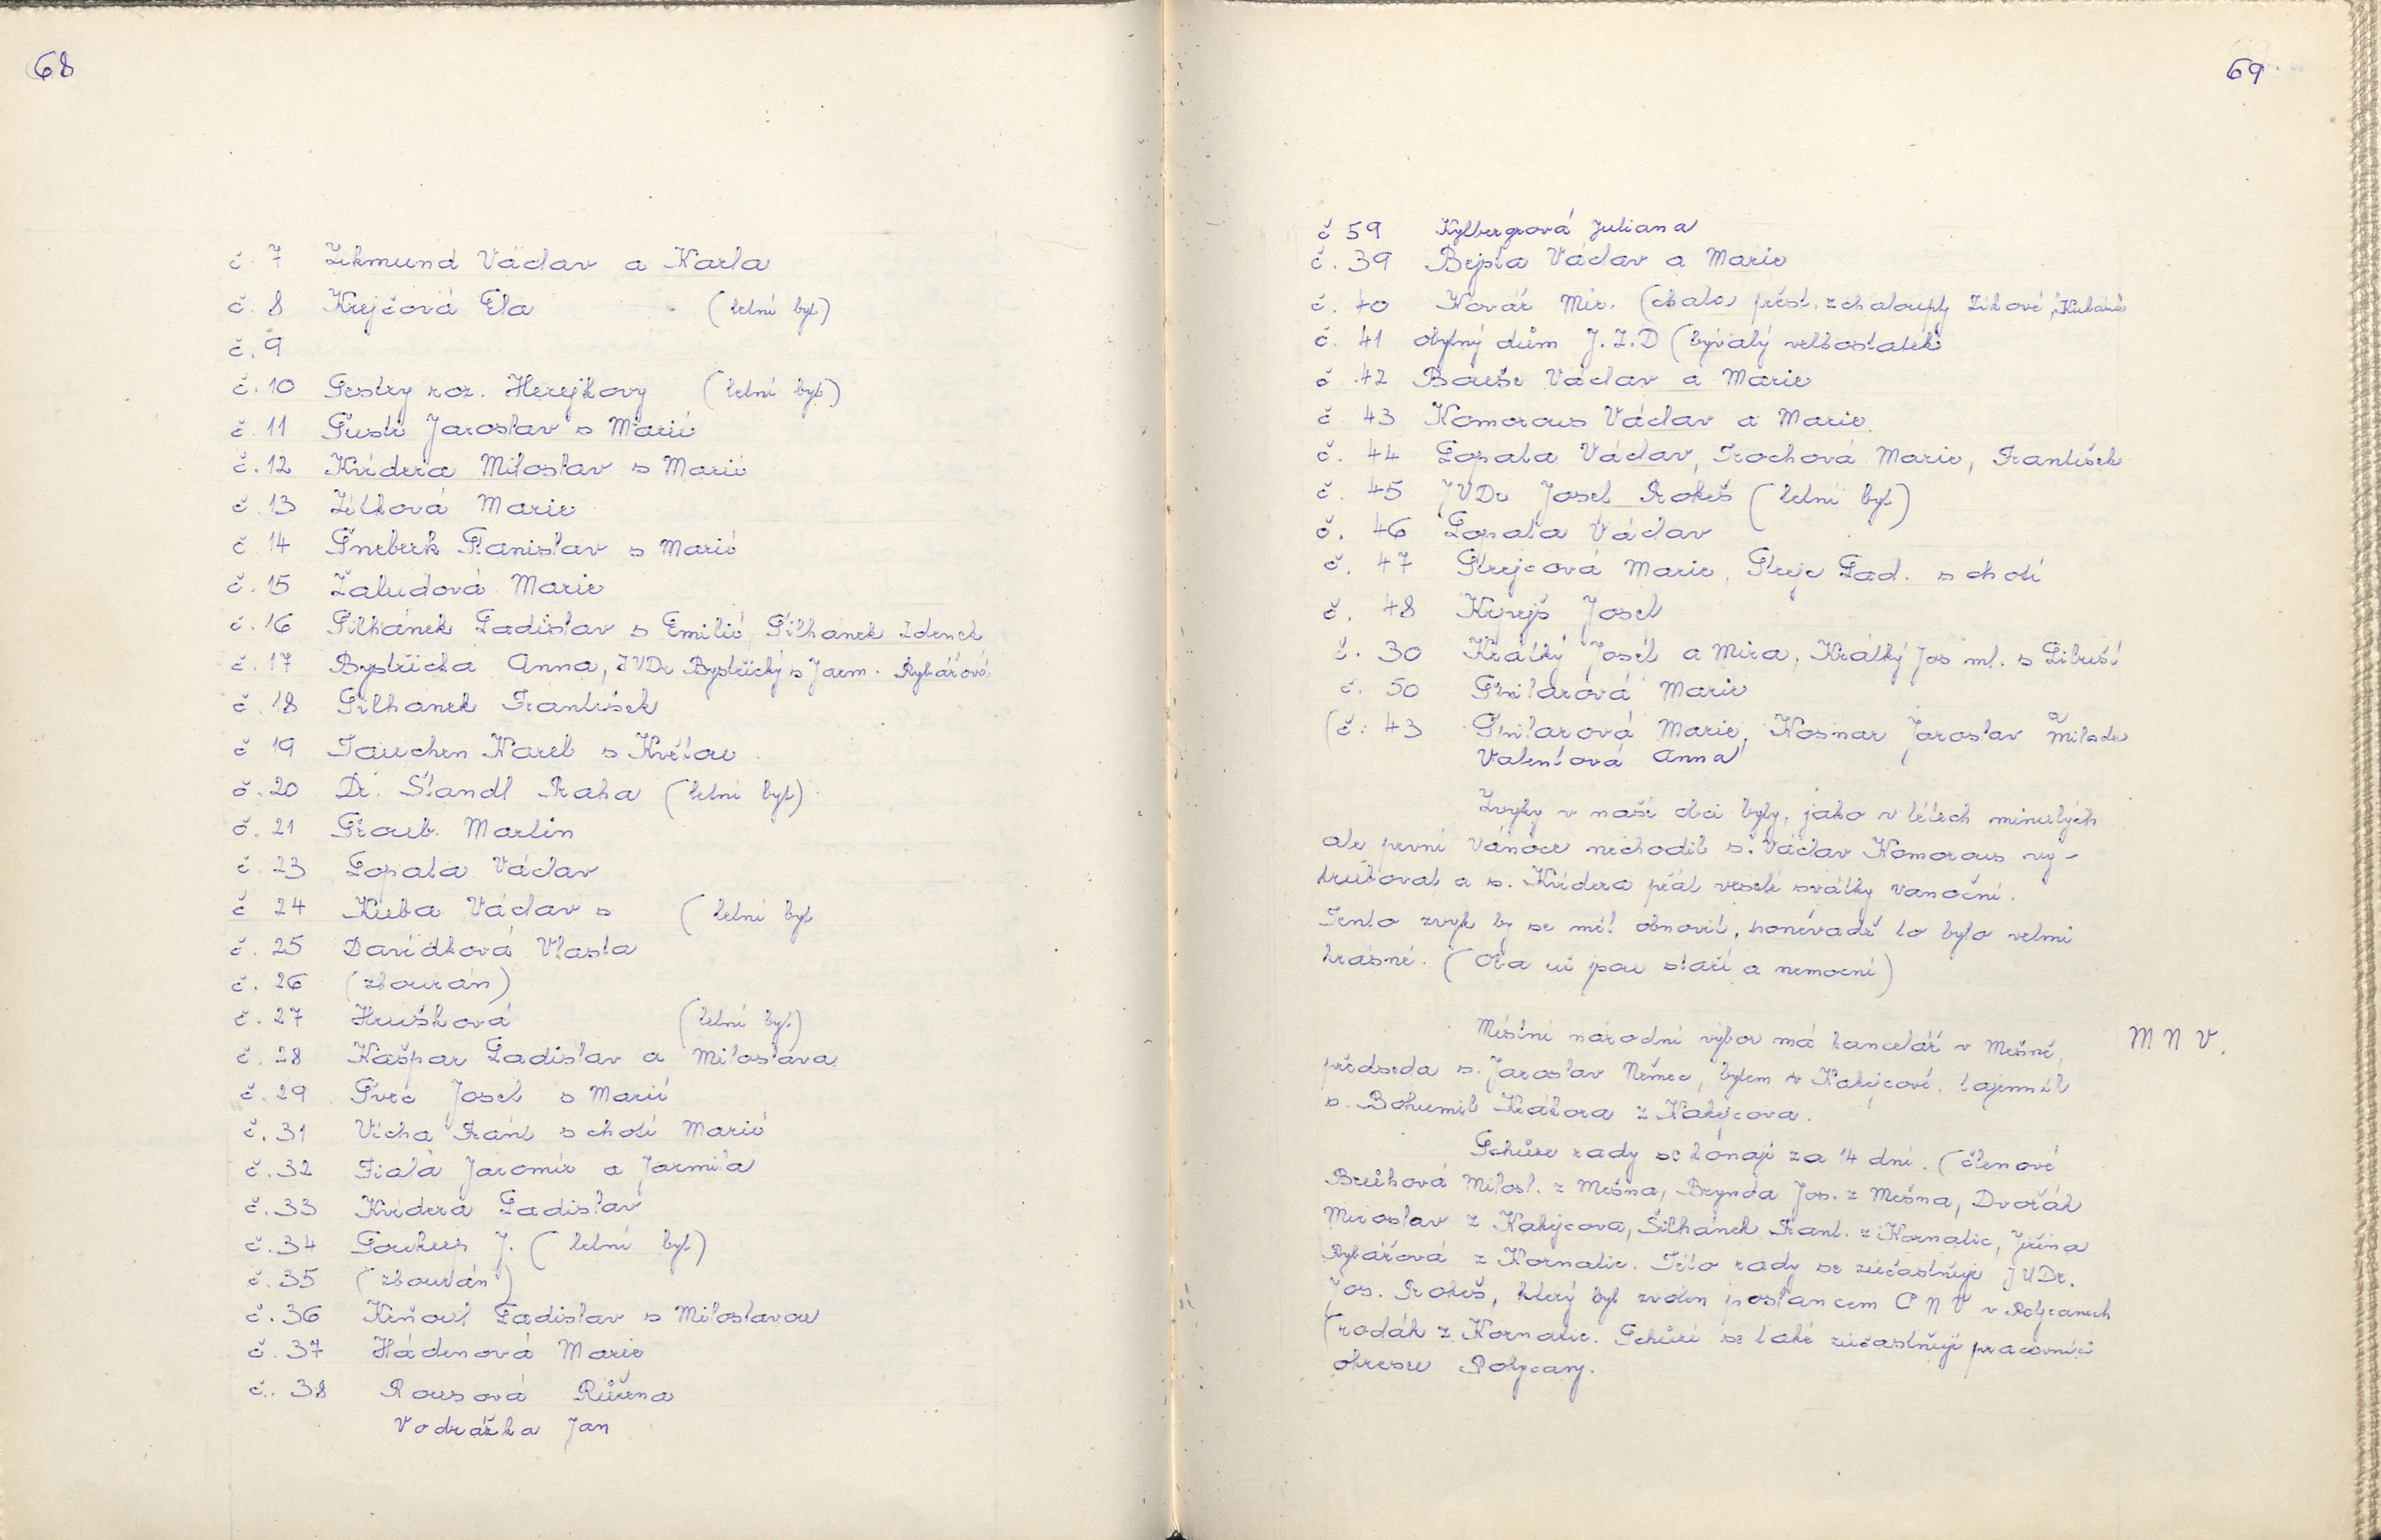 68
č. 7 Zikmund Václav a Karla
č. 8 Krejčová Ela (letní byt)
č. 9
č. 10 Sestry roz. Herejkovy (letní byt)
č. 11 Šustr Jaroslav s Marií
č. 12 Kvídera Miloslav s Marií
č. 13 Zítková Marie
č. 14 Šneberk Stanislav s Marií
č. 15 Žaludová Marie
č. 16 Šilhánek Ladislav s Emilií, Šilhánek Zdenek
č. 17 Bystřická Anna, JUDr Bystřický s Jarm. Rybářové
č. 18 Šilhanek František
č. 19 Tauchen Karel s Květou
č. 20 Dr. Štandl Praha (letní byt)
č. 21 Šroub Martin
č. 23 Lopata Václav
č 24 Kuba Václav s (letní byt
č. 25 Davídková Vlasta
č. 26 (zbourán)
č. 27 Hrušková (letní byt)
č. 28 Kašpar Ladislav a Miloslava
č. 29 Švec Josef s Marií
č. 31 Vícha Frant s chotí Marií
č. 32 Fiala Jaromír a Jarmila
č. 33 Kvídera Ladislav
č. 34 Soukup J. (letní byt)
č. 35 (zbourán)
č. 36 Kiňoul Ladislav s Miloslavou
č. 37 Hádenová Marie
č. 38 Rousová Růžena
Vodrážka Jan
69
č 59 Kylbergrová Juliana
č. 39 Bejsta Václav a Marie
č. 40 Kovář Mir. (chata přest. z chaloupky Zíkové,
č. 41 obytný dům J.Z.D (bývalý velkostatek
č .42 Bouše Václav a Marie
č 43 Komorous Václav a Marie
č. 44 Lopata Václav, Trochová Marie, František
č. 45 JUDr Josef Rokeš (letní byt)
č. 46 Lopata Václav
č. 47 Strejcová Marie, Strejc Lad. s chotí
č. 48 Kreyš Josef
č. 30 Krátký Josef a Míra, Krátký Jos ml. s Libuší
č. 50 Smitarová Marie
(č. 43 Smitarová Marie, Kosnar Jaroslav Milada
Valentová Anna
Zvyky v naší obci byly, jako v létech minulých
ale první Vánoce nechodil s. Václav Komorous vy-
trubovat a s. Kvídera přát veselé svátky vanoční.
Tento zvyk by se měl obnovit, poněvadž to bylo velmi
krásné. (Oba už jsou staří a nemocní)
Místní národní výbor má kancelář v Mešně, MNV.
předseda s. Jaroslav Němec, bytem v Kakejcově. tajemník
s. Bohumil Krákora z Kakejcova.
Schůze rady se konají za 14 dní. (členové
Brůhová Milosl. z Mešna, Brynda Jos. z Mešna, Dvořák
Miroslav z Kakejcova, Šilhánek Frant. z Kornatic, Jiřina
Rybářová z Kornatic. Této rady se zúčastňuje JUDr.
Jos. Rokeš, který byl zvolen poslancem ONV v Rokycanech
(rodák z Kornatic. Schůzí se také zúčastňují pracovníci
okresu Rokycany.